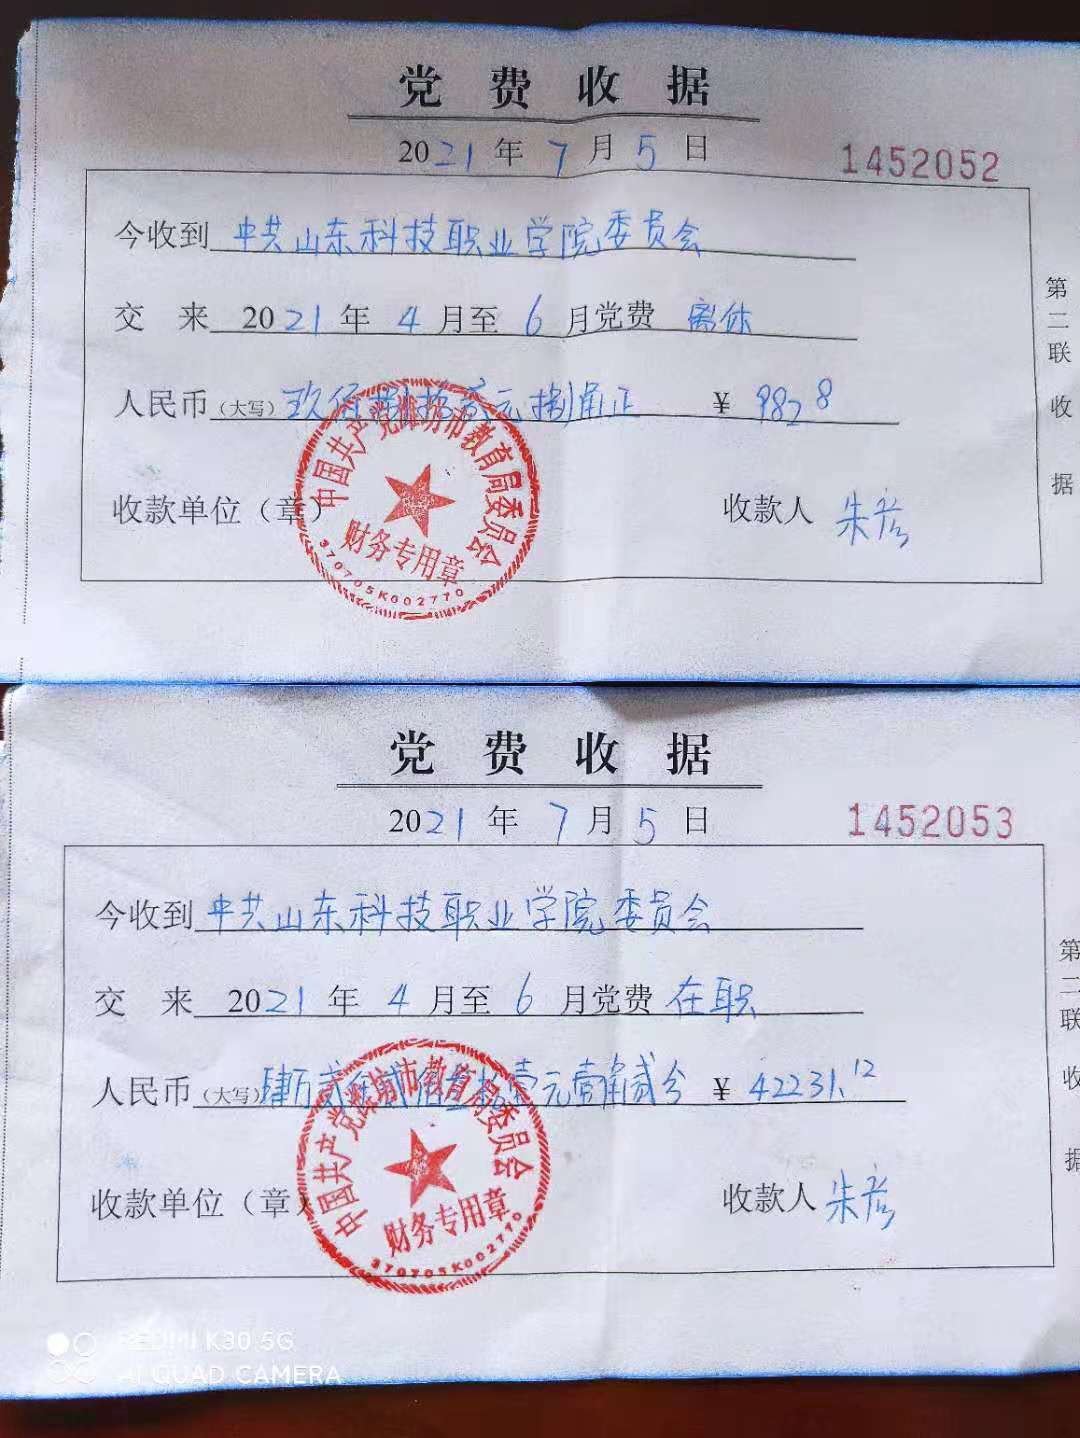 党费收据
2021年7月5日
1452052
今收到 中共山东科技职业学院委员会
交来 2021年4月至6月党费 离休
人民币（大写）玖佰捌拾贰元捌角正 ¥ 982.8
收款单位（章） 收款人 朱彦
中国共产党潍坊市教育局委员会
财务专用章
370705K002770
第二联 收据
党费收据
2021年7月5日
1452053
今收到 中共山东科技职业学院委员会
交来 2021年4月至6月党费 在职
人民币（大写）肆万贰仟贰佰叁拾壹元壹角贰分 ¥ 42231.12
收款单位（章） 收款人 朱彦
中国共产党潍坊市教育局委员会
财务专用章
370705K002770
第二联 收据
REDMI K30 5G
AI QUAD CAMERA